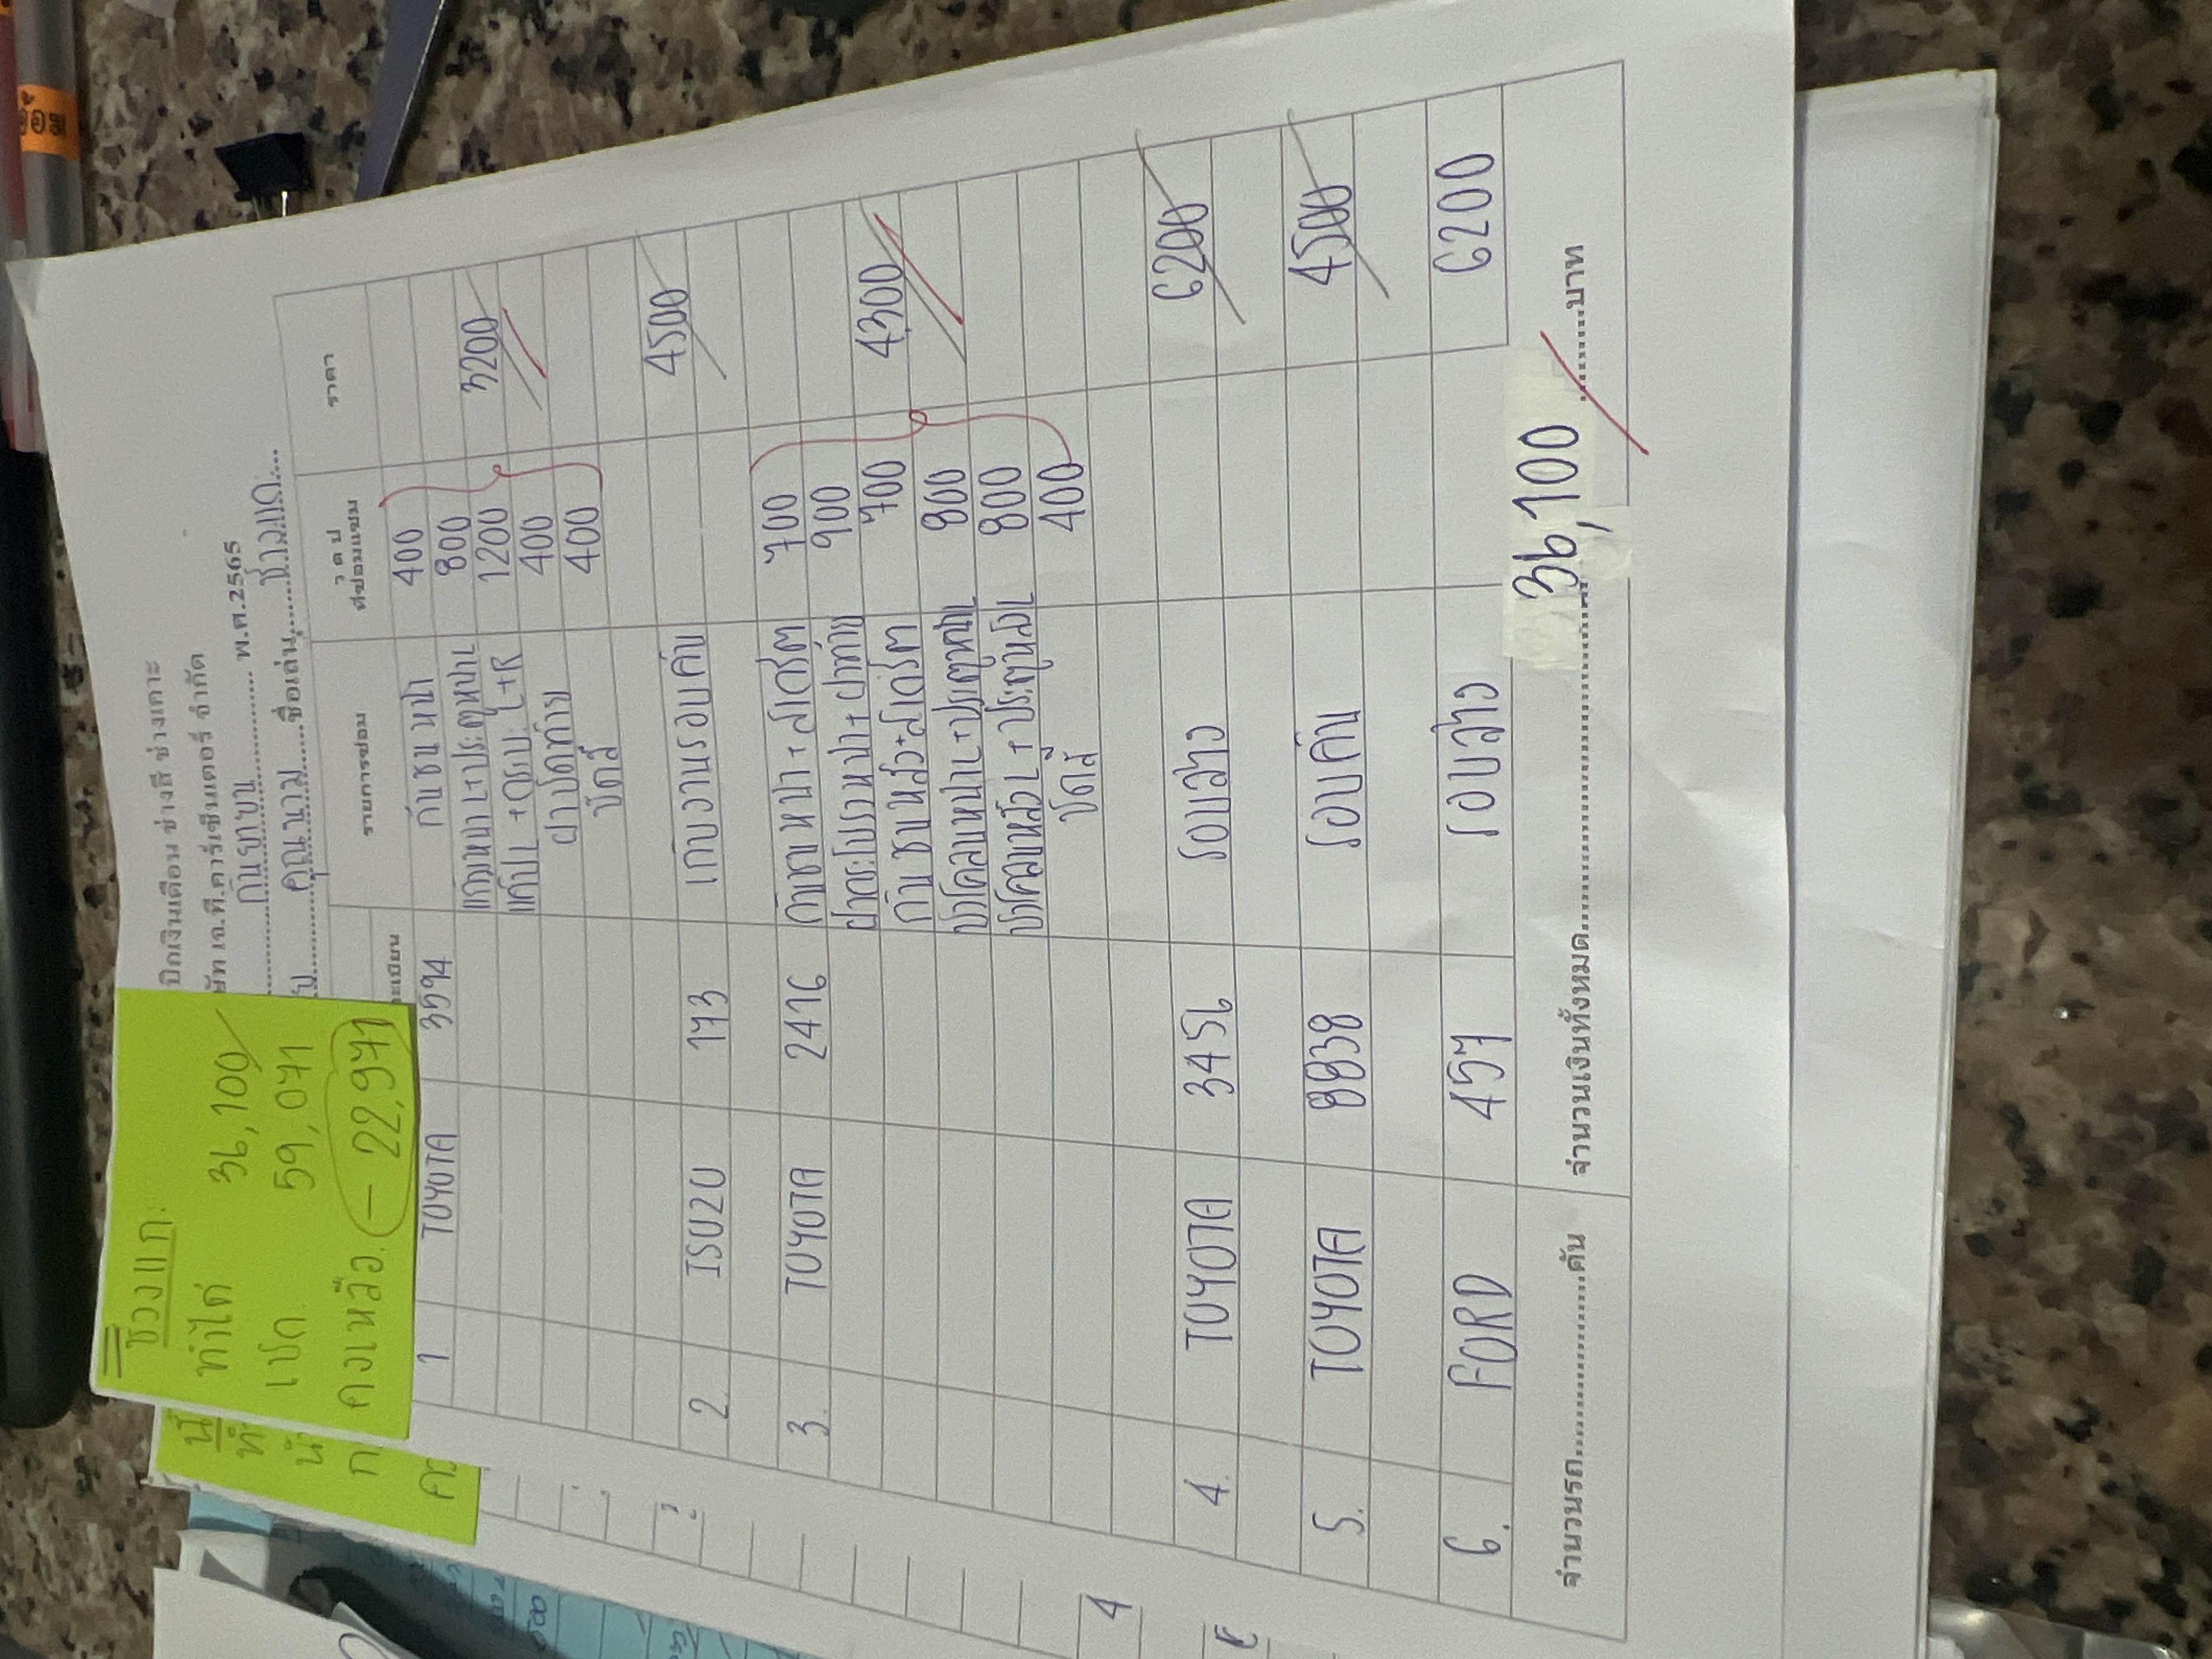 ช่างแก
ทำได้ 36,100
เบิก 59,071
คงเหลือ. - 22,971
บิกเงินเดือน ช่างสี ช่างเคาะ
ษัท เจ.ที.คาร์เซ็นเตอร์ จำกัด
กันยายน พ.ศ.2565
คุณนาม ชื่อเล่น ช่างแก
ะเบียน รายการซ่อม ว ด ป ที่ซ่อมแซม ราคา
1 TOYOTA 3594 กันชนหน้า 400
แก้มหน้าL+ประตูหน้าL 800
1200 3200
ฝาปิดท้าย 400
ปัดสี 400
2. ISUZU 173 เก็บงานรอบคัน 4500
3. TOYOTA 2416 กันชนหน้า+สเกิร์ต 700
ฝากระโปรงหน้า+ฝาท้าย 900
กันชนหลัง+สเกิร์ต 700 4300
800
800
ปัดสี 400
4. TOYOTA 3456 รอบล่าง 6200
5. TOYOTA 8838 รอบคัน 4500
6. FORD 457 รอบล่าง 6200
จำนวนรถ..........คัน จำนวนเงินทั้งหมด.......... 36,100 ..........บาท